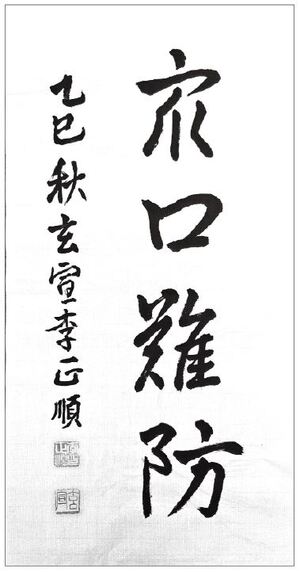 衆口難防
乙巳秋玄宣李正順